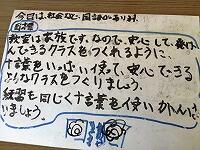 今日は、社会など、国語があります。
教室は家族です。なので、安心して、楽し
んできるクラスをつくれるように、
十言葉をいっぱいつかって、安心できる
ようなクラスをつくりましょう。
練習を同じく十言葉を使い
いましょう。